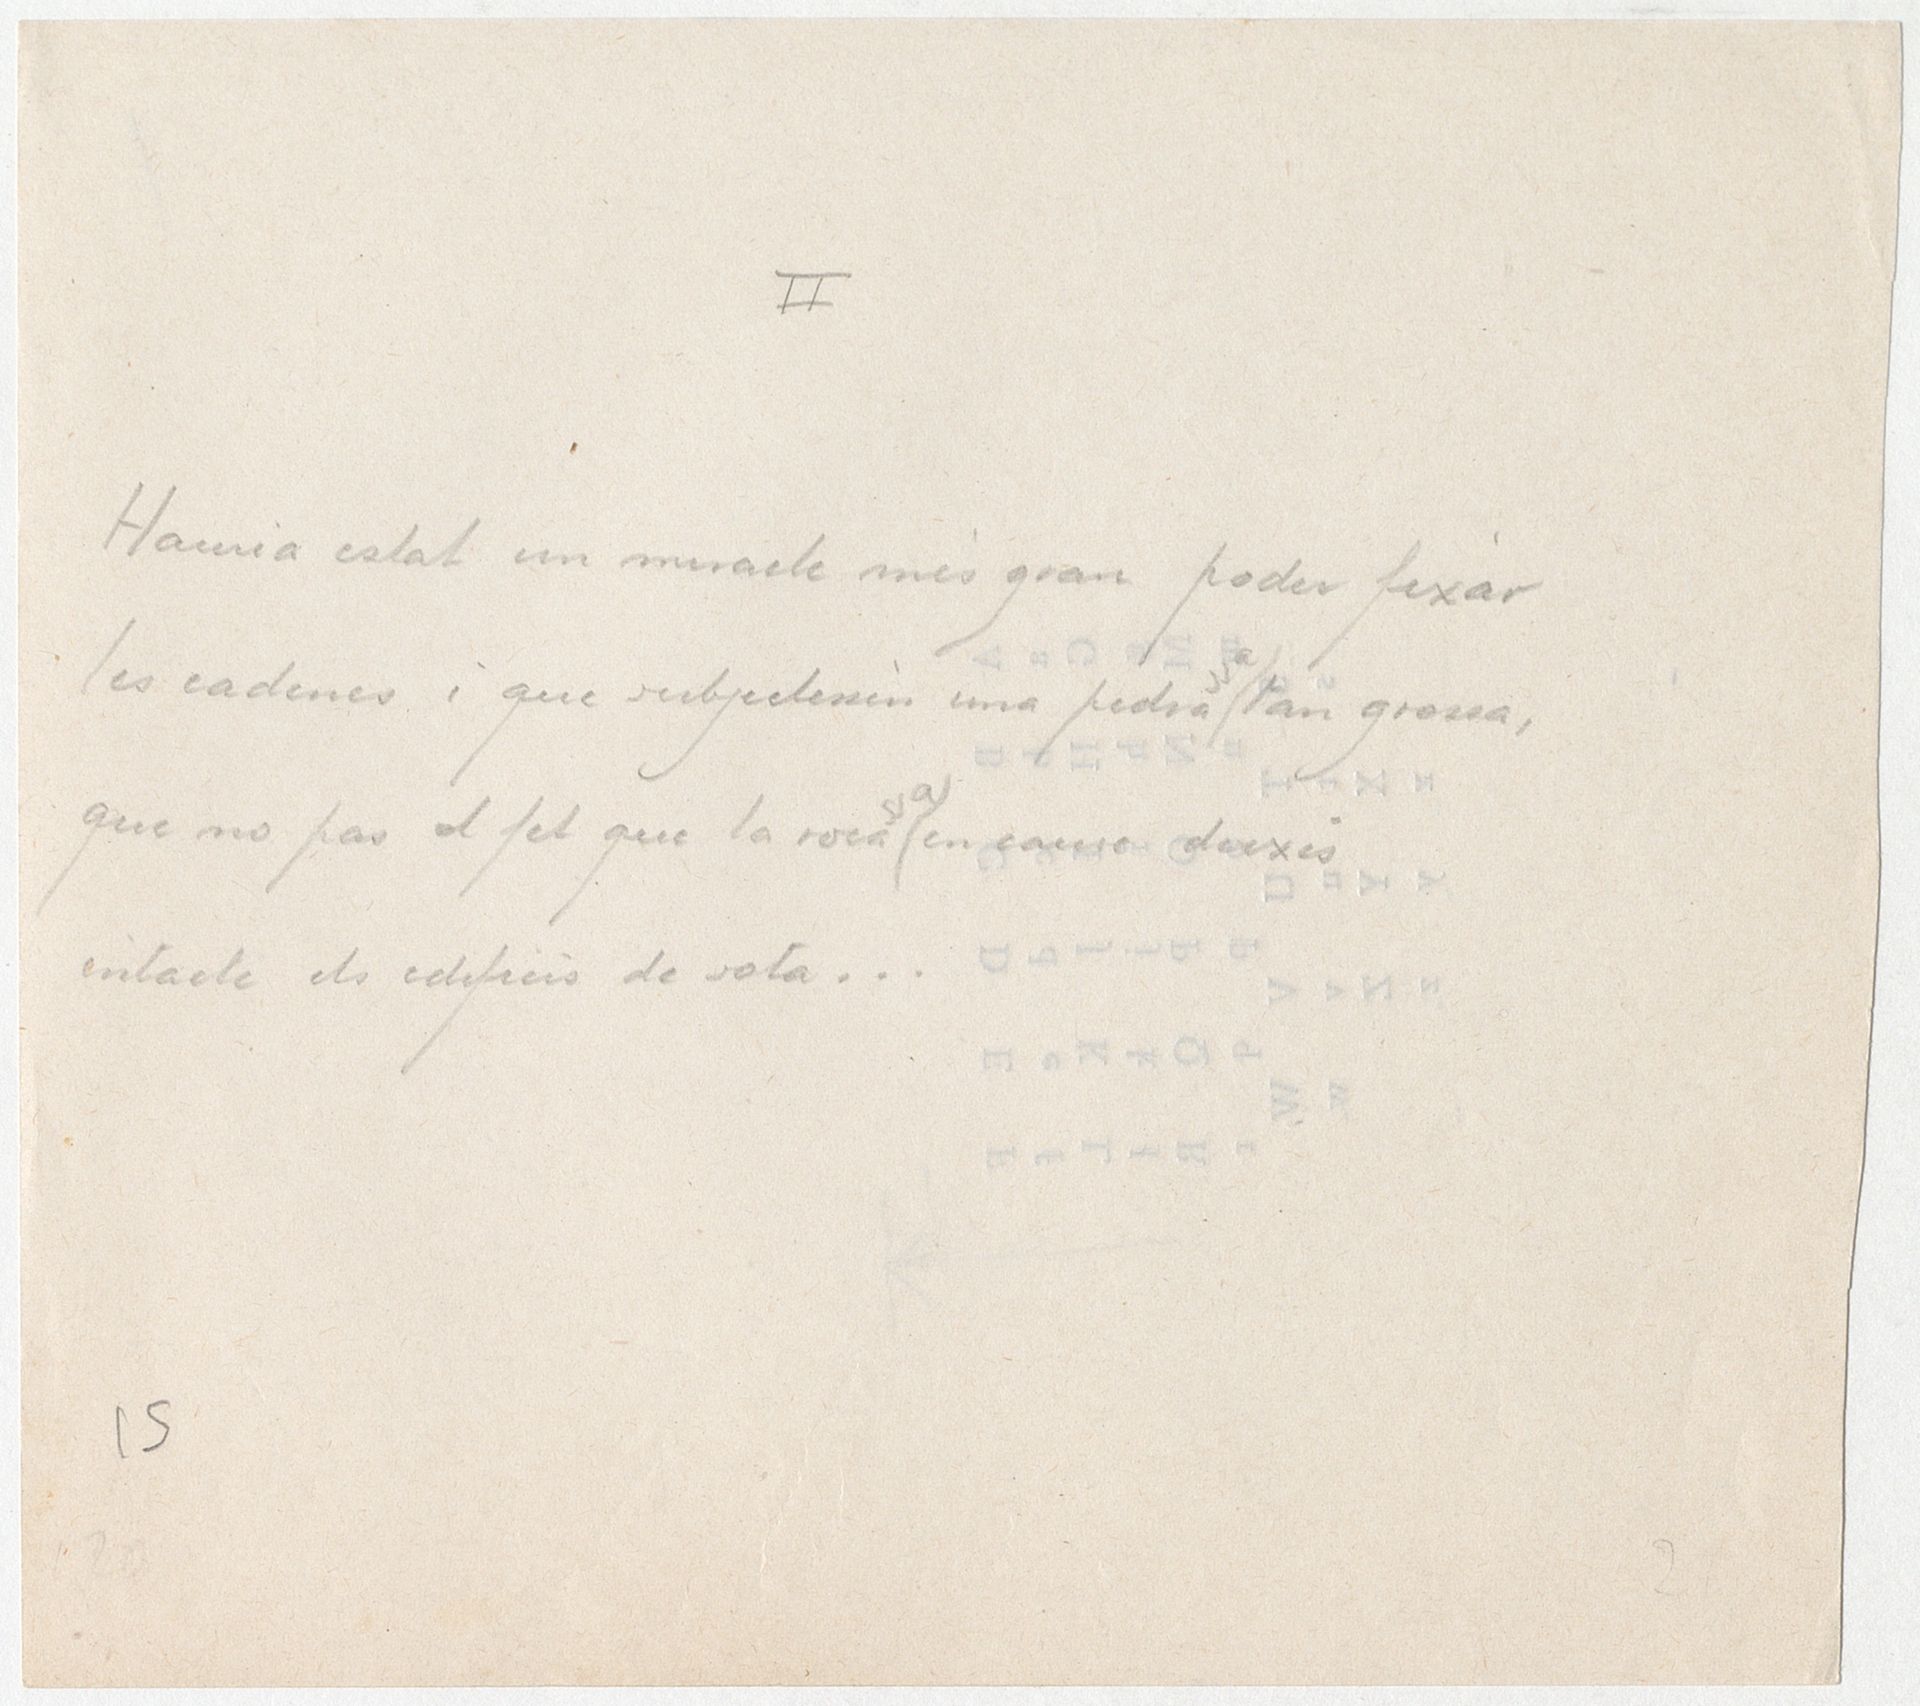 II
Hauria estat un miracle més gran poder fixar
les cadenes i que subjectessin una pedra tan grossa,
que no pas el fet que la roca en caure deixés
intacte els edificis de sota...
15
2